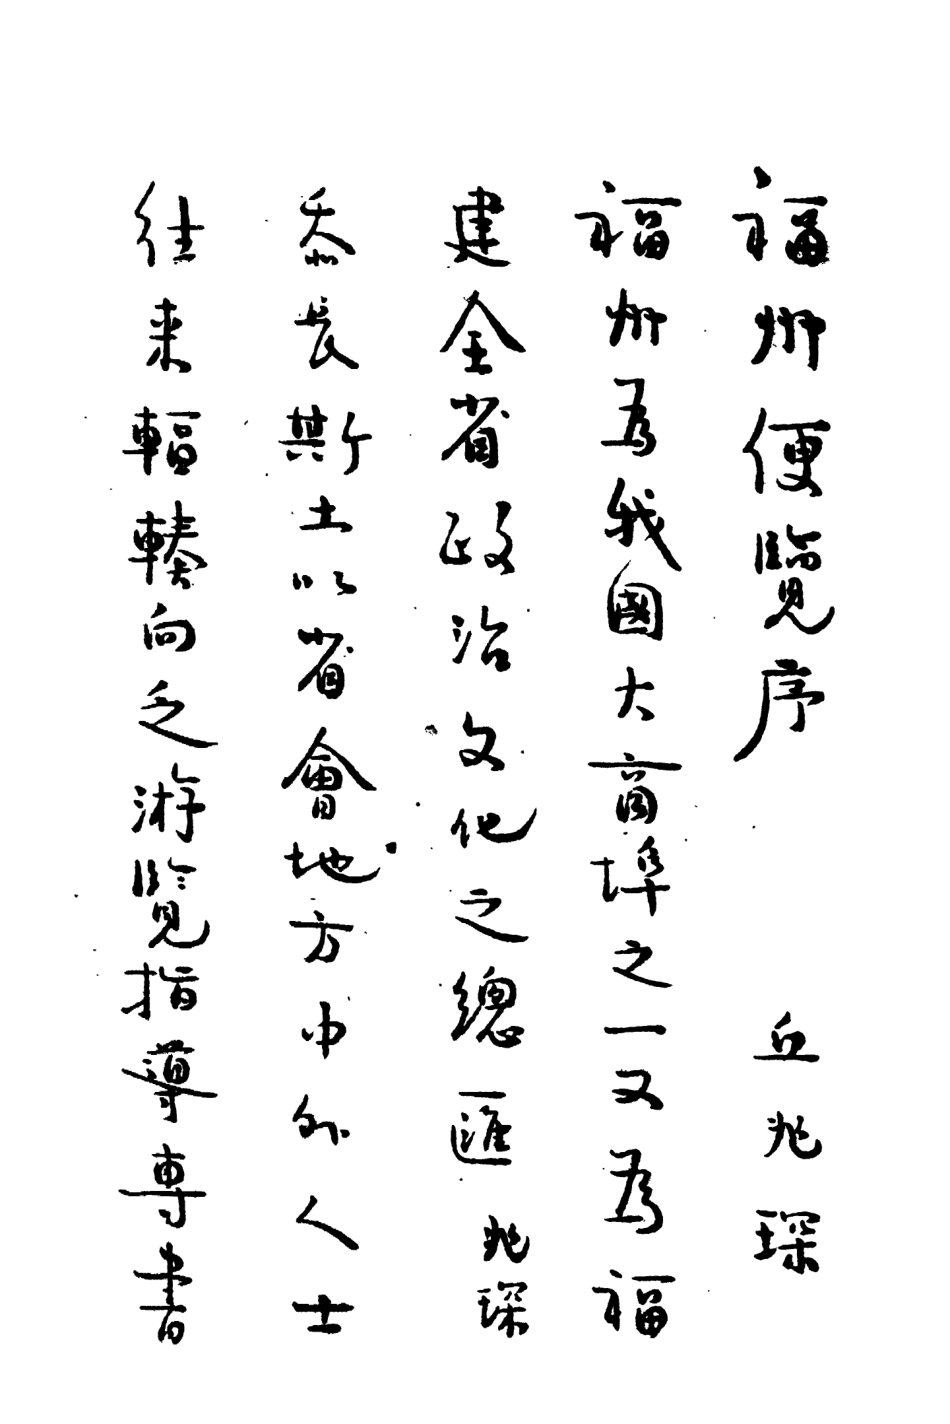 福州便覽序 丘兆琛
福州為我國大商埠之一又為福
建全省政治文化之總匯兆琛
忝長斯土以省會地方中外人士
往来輻輳向乏游覽指導專書